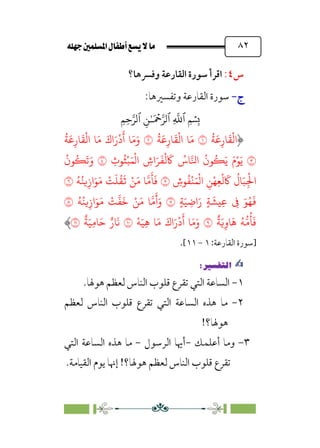 ٨٢
ما لا يسع أطفال المسلمين جهله
س٤: اقرأ سورة القارعة وفسرها؟
ج- سورة القارعة وتفسيرها:
بِسْمِ ٱللَّهِ ٱلرَّحْمَٰنِ ٱلرَّحِيمِ
﴿الْقَارِعَةُ ۝١ مَا الْقَارِعَةُ ۝٢ وَمَا أَدْرَاكَ مَا الْقَارِعَةُ
۝٣ يَوْمَ يَكُونُ النَّاسُ كَالْفَرَاشِ الْمَبْثُوثِ ۝٤ وَتَكُونُ
الْجِبَالُ كَالْعِهْنِ الْمَنْفُوشِ ۝٥ فَأَمَّا مَنْ ثَقُلَتْ مَوَازِينُهُ ۝٦
فَهُوَ فِي عِيشَةٍ رَاضِيَةٍ ۝٧ وَأَمَّا مَنْ خَفَّتْ مَوَازِينُهُ ۝٨
فَأُمُّهُ هَاوِيَةٌ ۝٩ وَمَا أَدْرَاكَ مَا هِيَهْ ۝١٠ نَارٌ حَامِيَةٌ ۝١١﴾
[سورة القارعة: ١ - ١١].
التفسير:
١- الساعة التي تقرع قلوب الناس لعظم هولها.
٢- ما هذه الساعة التي تقرع قلوب الناس لعظم
هولها؟!
٣- وما أعلمك -أيها الرسول - ما هذه الساعة التي
تقرع قلوب الناس لعظم هولها؟! إنها يوم القيامة.